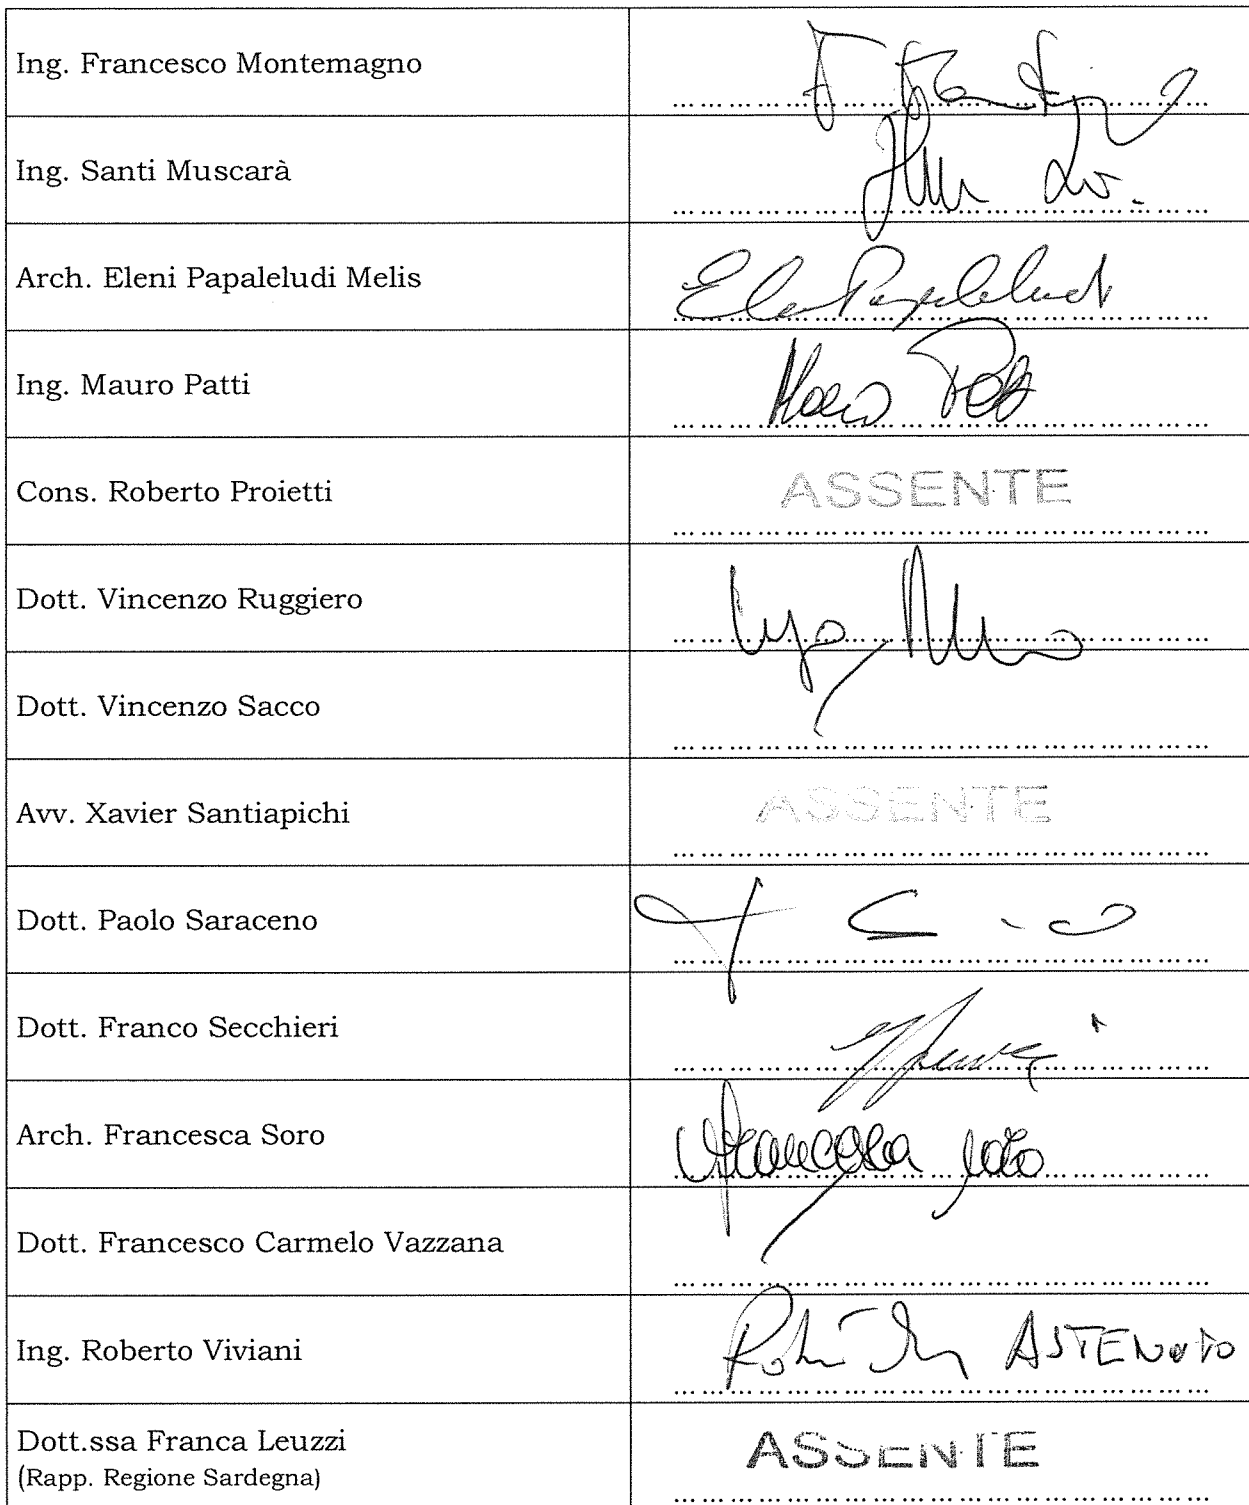 Ing. Francesco Montemagno
Ing. Santi Muscarà
Arch. Eleni Papaleludi Melis
Ing. Mauro Patti
Cons. Roberto Proietti
ASSENTE
Dott. Vincenzo Ruggiero
Dott. Vincenzo Sacco
Avv. Xavier Santiapichi
ASSENTE
Dott. Paolo Saraceno
Dott. Franco Secchieri
Arch. Francesca Soro
Francesca Soro
Dott. Francesco Carmelo Vazzana
Ing. Roberto Viviani
ASTENUTO
Dott.ssa Franca Leuzzi
(Rapp. Regione Sardegna)
ASSENTE